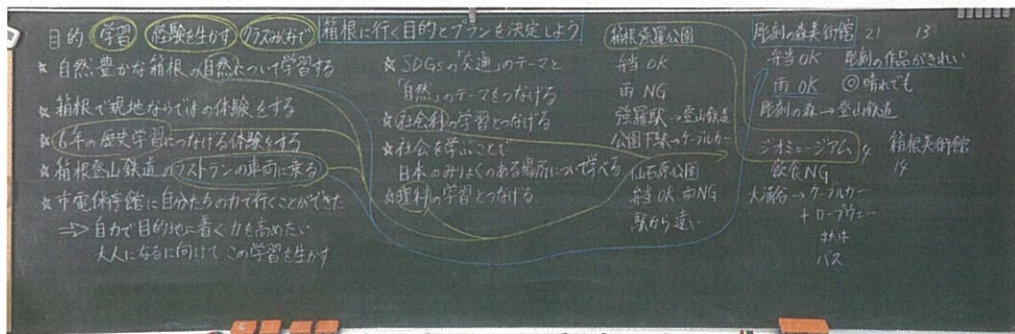 目的 学習 経験を生かす クラスみんなで
箱根に行く目的とプランを決定しよう
★自然豊かな箱根の自然について学習する
★箱根で現地ならではの体験をする
★6年の歴史学習につなげる体験をする
★箱根登山鉄道のラストランの車両に乗る
★市電保存館に自分たちの力で行くことができた
⇒自力で目的地に着く力を高めたい
大人になるに向けてこの学習を生かす
★SDGsの「交通」のテーマと
「自然」のテーマをつなげる
★社会科の学習とつなげる
★社会を学ぶことで
日本のみりょくのある場所について学べる
★理科の学習とつなげる
箱根強羅公園
弁当OK
雨NG
強羅駅→登山鉄道
公園下駅→ケーブルカー
仙石原公園
弁当OK 雨NG
駅から遠い
彫刻の森美術館 21 13
弁当OK 彫刻の作品がきれい
雨OK ◎晴れでも
彫刻の森→登山鉄道
ジオミュージアム 4
飲食NG
大涌谷→ケーブルカー
+ロープウェー
または
バス
箱根美術館
14